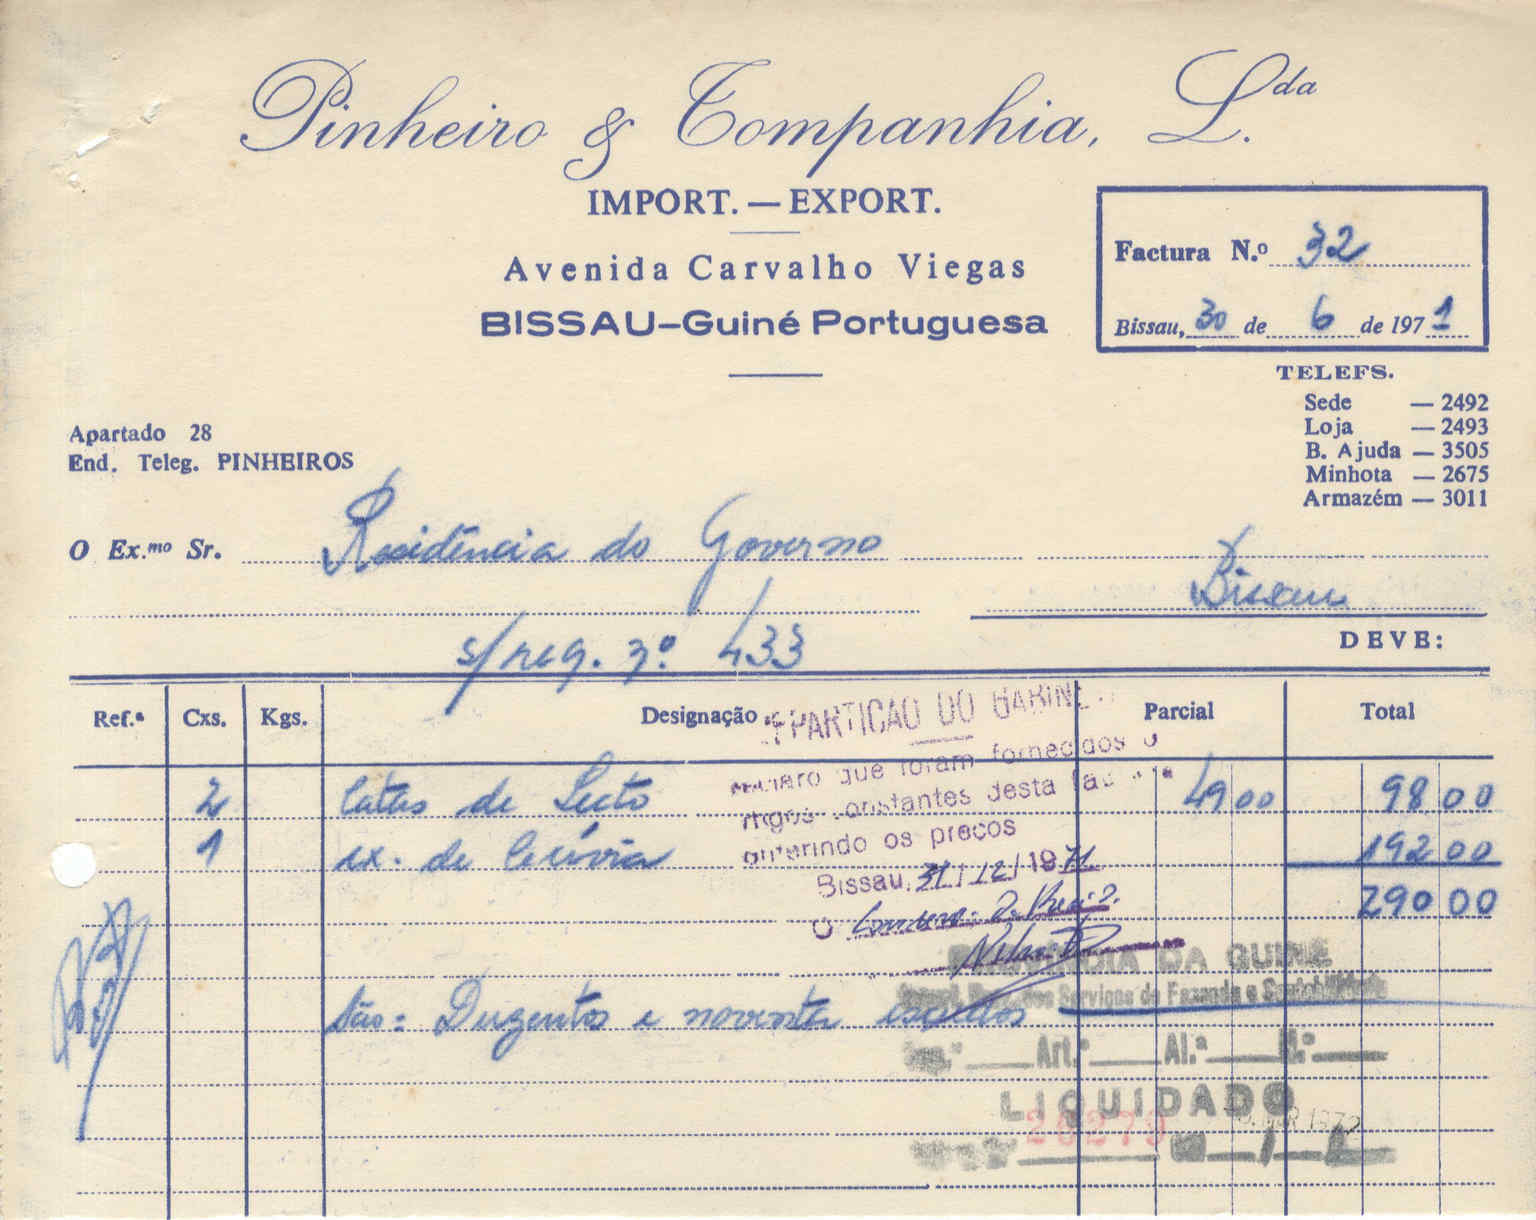 Pinheiro & Companhia, L.da
IMPORT. — EXPORT.
Avenida Carvalho Viegas
BISSAU—Guiné Portuguesa
Factura N.º 32
Bissau, 30 de 6 de 1971
TELEFS.
Sede — 2492
Loja — 2493
B. Ajuda — 3505
Minhota — 2675
Armazém — 3011
Apartado 28
End. Teleg. PINHEIROS
O Ex.mo Sr. Residência do Governo
Bissau
DEVE:
s/ req. nº 433
Ref.ª Cxs. Kgs. Designação Parcial Total
2 latas de 49 00 98 00
1 cx. de 192 00
290 00
São: Duzentos e noventa escudos
que foram fornecidos
constantes desta
os preços
Bissau, 31/12/1971
O
DA GUINÉ
dos Serviços de Fazenda e Contabilidade
Art.º Al.ª N.º
LIQUIDADO
26279 MAR 1972